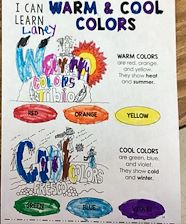 I CAN LEARN
WARM & COOL COLORS
Laney
Warm
COLORS
WARM COLORS
are red, orange,
and yellow.
They show heat
and summer.
RED
ORANGE
YELLOW
Cool
COLORS
COOL COLORS
are green, blue,
and violet.
They show cold
and winter.
GREEN
BLUE
VIOLET